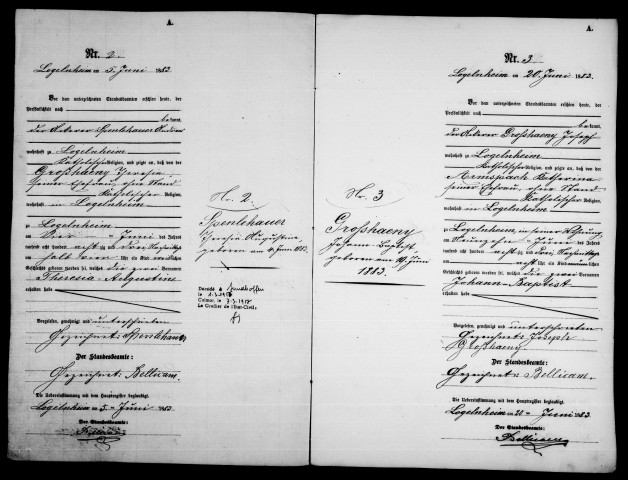 A.
Nr. 2.
Logelnheim am 5. Juni 1883.
Vor dem unterzeichneten Standesbeamten erschien heute, der
Persönlichkeit nach
bekannt,
der Ackerer Spenlehauer Andreas
wohnhaft zu Logelnheim
Katholischer Religion, und zeigte an, daß von der
Großhaeny Theresia
seiner Ehefrau, ohne Stand
Katholischer Religion,
wohnhaft in Logelnheim
zu Logelnheim
am Juni des Jahres
tausend acht hundert acht zig und drei Nachmittags
um halb vier Uhr ein Kind weiblichen
Geschlechts geboren worden sei, welches die zwei Vornamen
Theresia Augustine
erhalten habe
Vorgelesen, genehmigt und unterschrieben
Gezeichnet: Spenlehauer
Der Standesbeamte:
Gezeichnet: Bellicam.
Die Uebereinstimmung mit dem Hauptregister beglaubigt.
Logelnheim am 5. Juni 1883.
Der Standesbeamte:
Nr. 2
Spenlehauer
Theresia Augustine
geboren am Juni 1883.
Décédée à
le
Colmar, le
Le Greffier de l'Etat-Civil:
Nr. 3
Großhaeny
Johann Baptist
geboren am 19 Juni
1883.
A.
Nr. 3
Logelnheim am 20. Juni 1883.
Vor dem unterzeichneten Standesbeamten erschien heute, der
Persönlichkeit nach
bekannt,
der Ackerer Großhaeny Joseph
wohnhaft zu Logelnheim
Katholischer Religion, und zeigte an, daß von der
Armspach Katharina
seiner Ehefrau, ohne Stand
Katholischer Religion,
wohnhaft in Logelnheim
zu Logelnheim, in seiner Wohnung
am Neunzehn Juni des Jahres
tausend acht hundert acht zig und drei Nachmittags
um acht Uhr ein Kind männlichen
Geschlechts geboren worden sei, welches die zwei Vornamen
Johann Baptist
erhalten habe
Vorgelesen, genehmigt und unterschrieben
Gezeichnet: Joseph
Großhaeny.
Der Standesbeamte:
Gezeichnet: Bellicam.
Die Uebereinstimmung mit dem Hauptregister beglaubigt.
Logelnheim am 20 Juni 1883.
Der Standesbeamte:
Bellicam